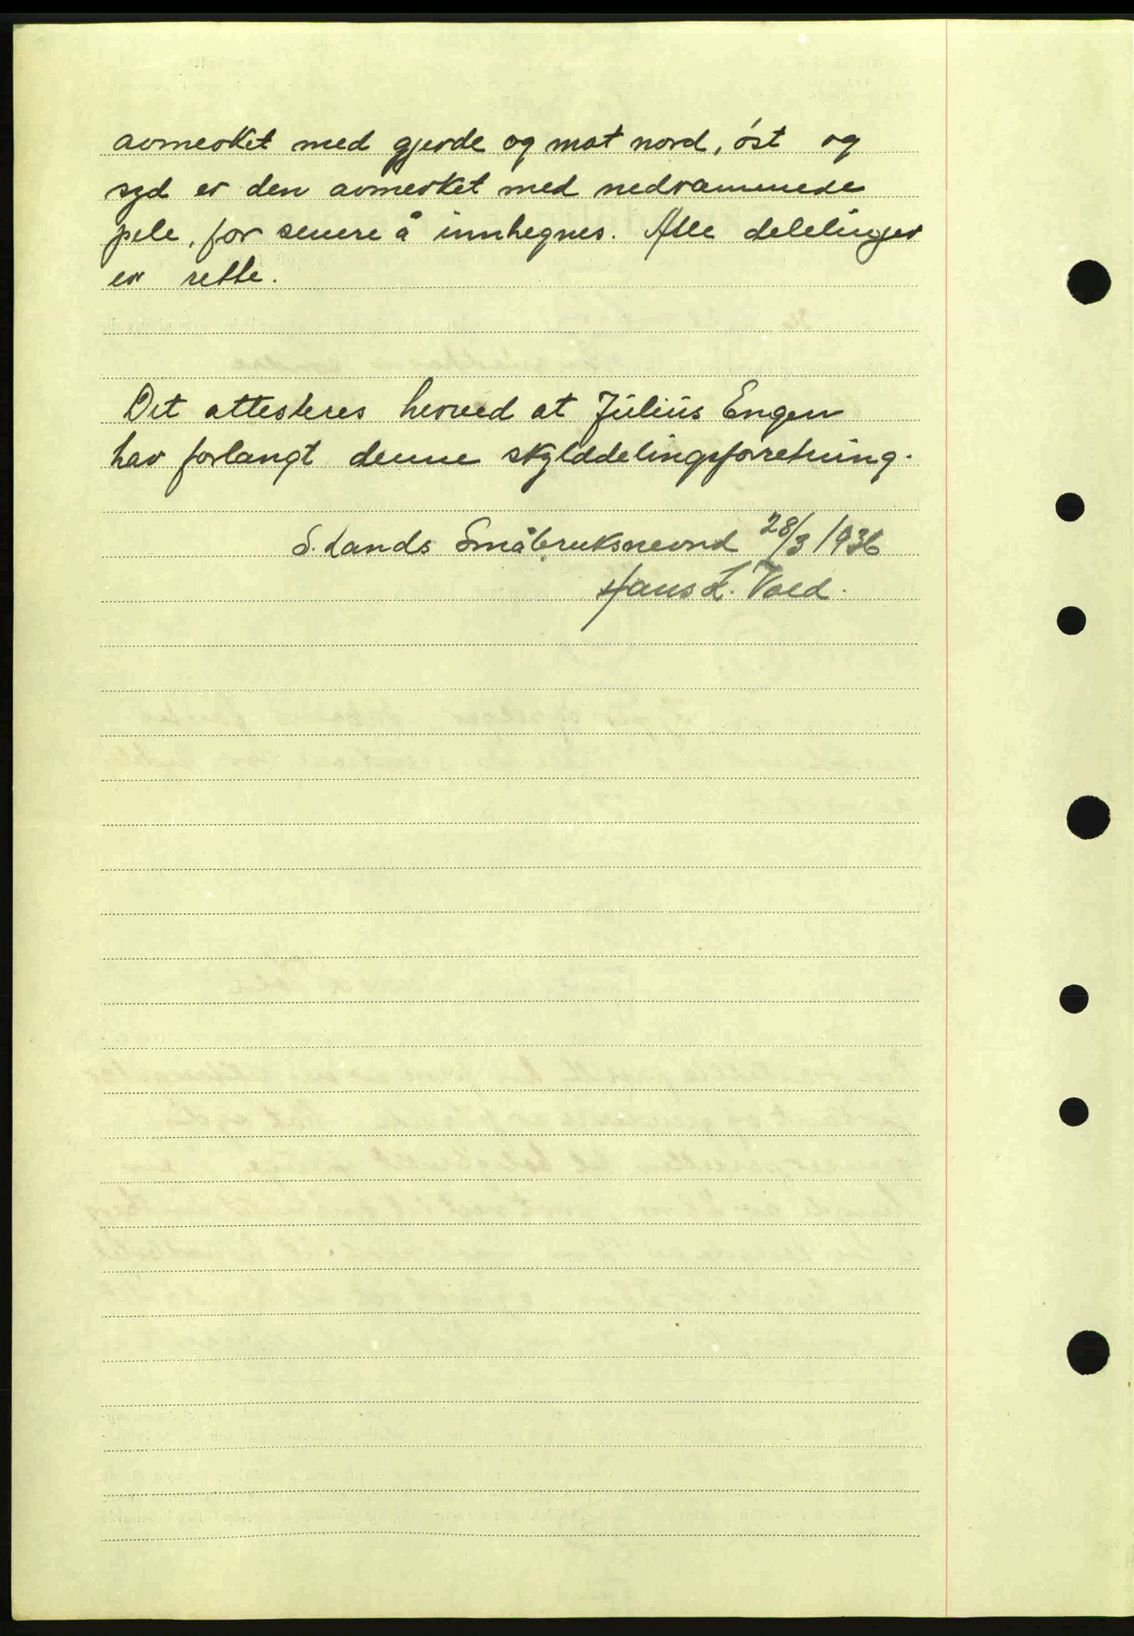 avmerket med gjerde og mot nord, øst og
syd er den avmerket med nedrammede
pele, for senere å innhegnes. Alle delelinjer
er rette.
Det attesteres herved at Julius Engen
har forlangt denne skylddelingsforretning.
S. Lands Småbruksnevnd 28/3 1936
Hans L. Vold.